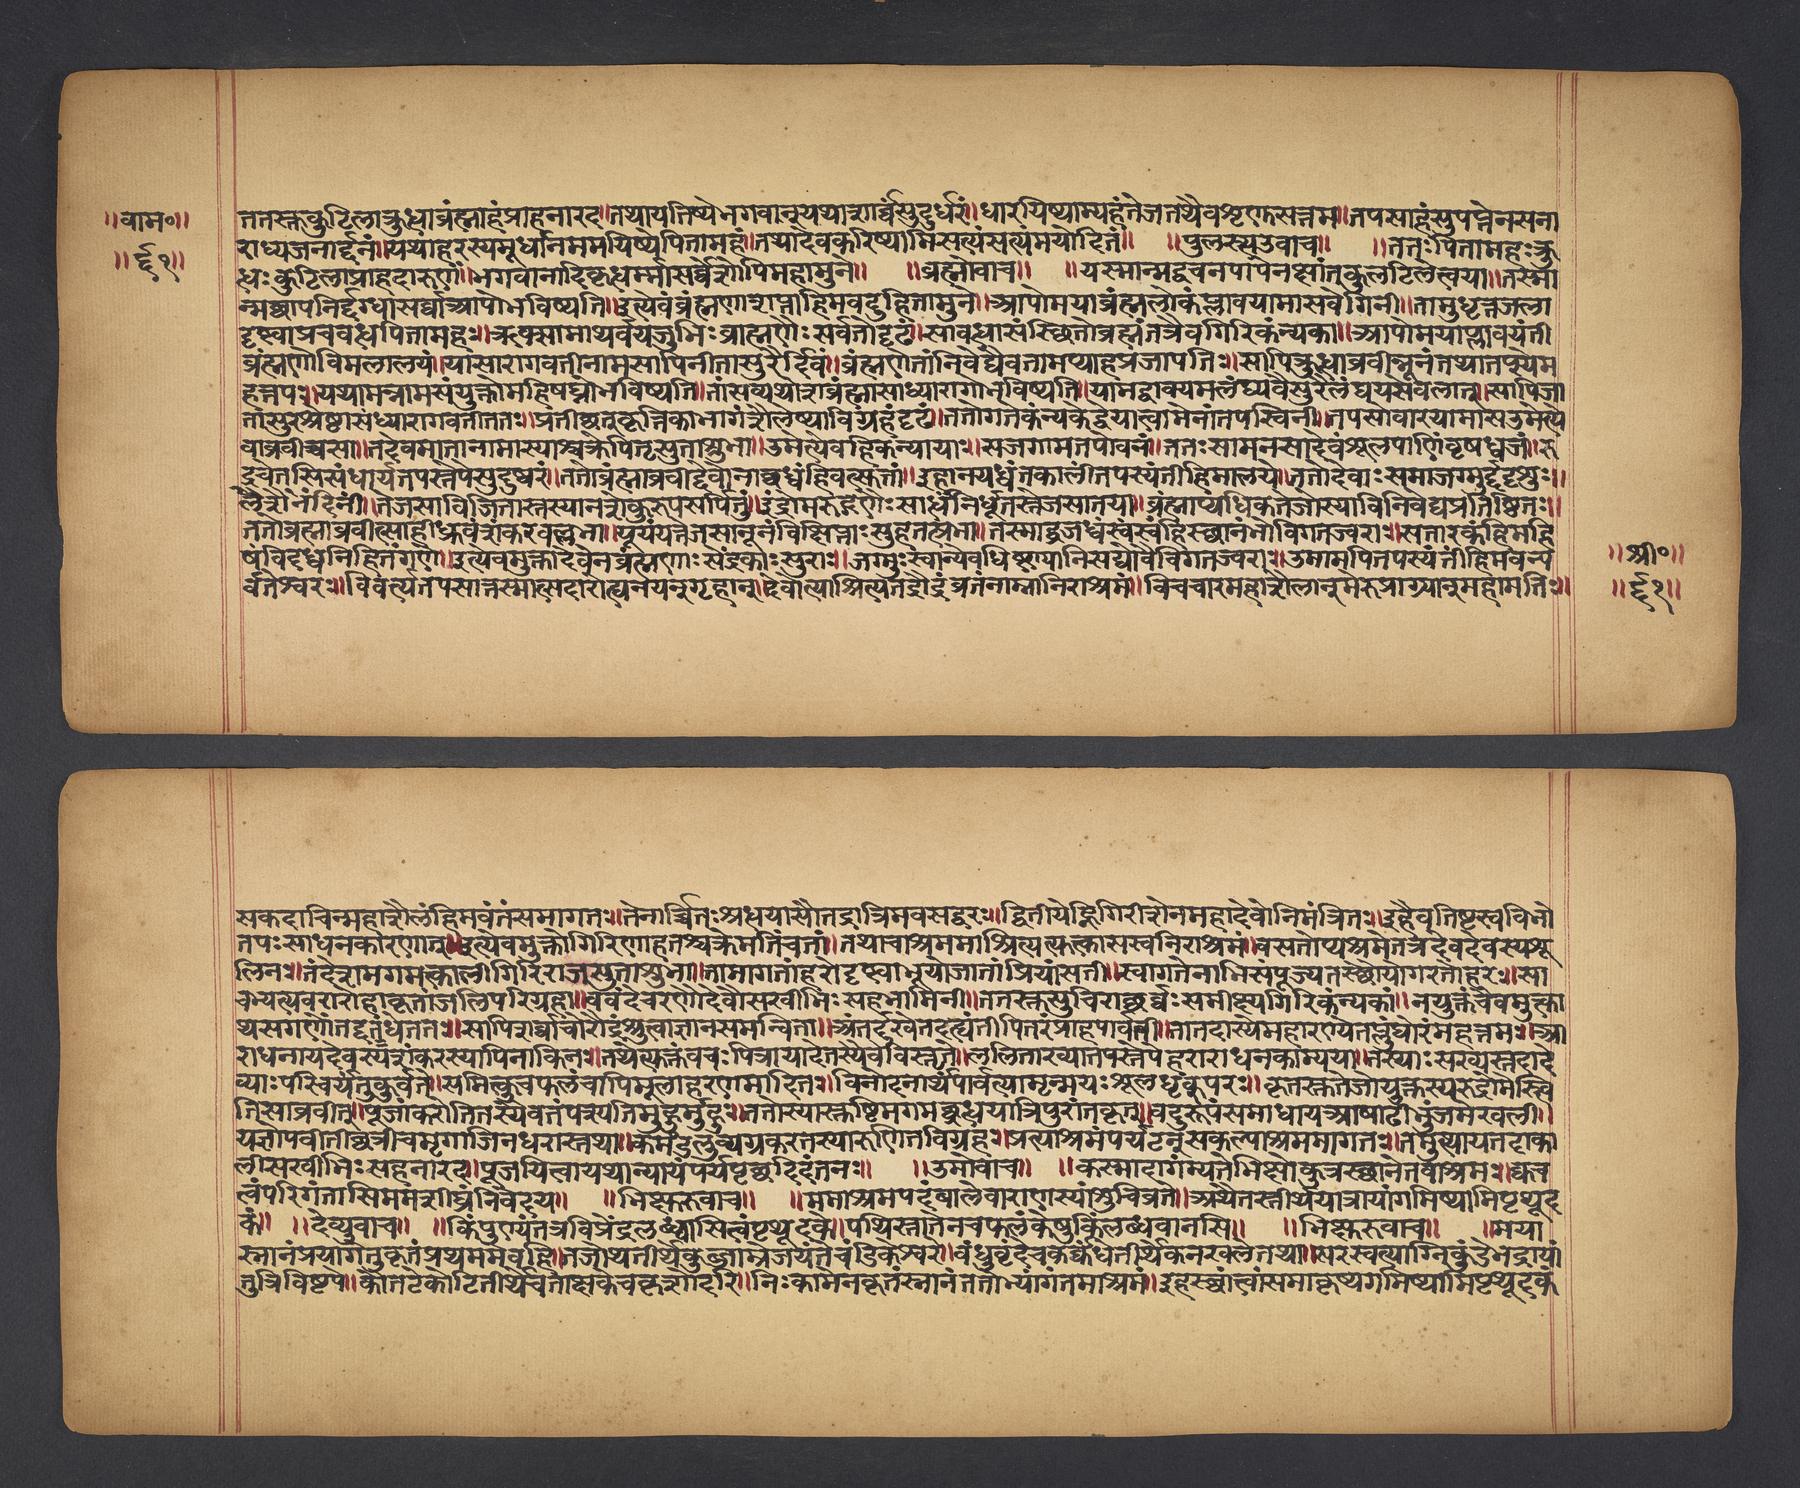 ॥वाम॰॥
ततस्तकुटिलाक्रुधाब्रंह्माहंप्राहनारद॥तथायतिष्येभगवान्यथाशार्व्वंसुदुर्धरं॥धारयिष्याम्यहंतेजतथैवशृणुसत्तम॥तपसाहंसुपप्तेनसना
॥६१॥
राध्यजनार्द्दनं॥यथाहरस्यमूर्धानमममयिष्येपितामहं॥तथादेवकरिष्यामिसत्यंसत्यंमयोदितं॥ ॥पुलस्त्यउवाच॥ ॥ततःपितामहःक्रु
ध्धःकुटिलांप्राहदारूणां॥भगवानादिकृध्धर्म्मासर्व्वेशोपिमहामुने॥ ॥ब्रह्मोवाच॥ ॥यस्मान्मद्वचनंपापेनक्षांतंकुलटिलेत्वया॥तस्मा
न्मछापनिर्द्दग्धासर्व्वाआपोभविष्यति॥इत्येवंब्रंह्मणाशप्ताहिमवदुहितामुने॥आपोमयाब्रंह्मलोकंप्लावयामासवेगिनी॥तामुधृत्तजला
दृष्ट्वाप्रबबंधपितामहः॥ऋक्सामाथर्वयजुभिःबाह्मणैःसर्वतोदृढं॥साबध्धासंस्थिताब्रह्मंतत्रेवगिरिकंन्यका॥आपोमयाप्लावयंती
ब्रंह्मणोविमलालयं॥यासारागवतीनामसापिनीतासुरैर्दिवं॥ब्रंह्मणेतांनिवेद्यैवतामप्याहप्रजापतिः॥सापिक्रुधाब्रवीन्नूनंतथातप्स्येम
हत्तपः॥यथामन्नामसंयुक्तोमहिषघ्नोभविष्यति॥तांसव्यथोशब्रंह्मासाध्यारागोभविष्यति॥यामद्वाक्यमलंघ्यवैसुरेलंघयसेबलात्॥सापिजा
तासुरश्रेष्ठासंध्यारागवतीततः॥प्रतीछत्कृत्तिकाभागंशैलेष्याविग्रहंदृढं॥ततोगतेकंन्यकेद्वेयात्वामेनांतपस्विनी॥तपसोवारयामासउमेत्ये
वाब्रवीच्चसा॥तदेवमातानामास्याश्चक्रेपितृसुताशुभा॥उमेत्येवहिकंन्यायाः॥सजगामतपोवनं॥ततःसामनसादेवंशूलपाणिंवृषध्वजं॥रु
द्रंचेतसिसंधार्यतपस्तेपेसुदुष्करं॥ततोब्रंह्माब्रवीद्देवान्गछध्वंहिवत्सुतां॥इहानयध्वंतंकालींतपस्यंतीहिमालये॥ततोदेवाःसमाजग्मुर्ददृशुः॥
शैलनंदिनी॥तेजसाविजितास्तस्यानशेकुरुपसर्पितुं॥इंद्रोमरूद्गणैःसार्ध्धंनिर्धूतस्तेजसातया॥ब्रंह्माण्यधिकतेजोस्याविनिवेद्यप्रतिष्ठितः॥
ततोब्रह्माब्रवीत्साहीध्रुवंशंकरवल्लभा॥यूयंयत्तेजसानूनंविक्षिप्ताःसुहतत्प्रभा॥तस्माद्व्रजध्वंस्वंस्वंहिस्थानंभोविगतज्वराः॥सतारकंहिमहि
॥श्री॰॥
षंविदध्वंनिहितंगणे॥इत्येवमुक्तादेवेनब्रंह्मणाःसेंद्रकाःसुराः॥जग्मुःस्वान्येवधिष्ण्यानिसद्योवैविगतज्वराः॥उमामपितपस्यंतींहिमवन्प
॥६१॥
र्वतेश्वरः॥विवर्त्यतपसात्तस्मात्सदारोत्द्यनयन्गृहान्॥देवोत्याश्रित्यतद्रौद्रंव्रतंनाम्नानिराश्रमं॥विचचारमहाशैलान्मेरूप्राग्यान्महामतिः॥
सकदाचिन्महाशैलंहिमवंतंसमागतः॥तेनार्च्चितःश्रधयासौतद्रात्रिमवसद्धरः॥द्वितीयेह्निगिरीशेनमहादेवोनिमंत्रितः॥इहैवतिष्टस्वविभो
तपःसाधनकारणात्॥इत्येवमुक्तोगिरिणाहतश्चक्रेमतिंचतां॥तथाचाश्रममाश्रित्यत्यत्कासस्वनिराश्रमं॥वसतोप्यश्रमेतत्रदेवदेवस्यशू
लिनः॥तंदेशमगमत्कालीगिरिराजसुताशुभा॥तामागतांहरोदृष्ट्वाभूयोजातांप्रियांसती॥स्वागतेनाभिसंपूज्यतस्थौयोगरतोहरः॥सा
चभ्येत्यवरारोहाकृतांजलिपरिग्रहा॥ववंदेचरणौदेवीसखीभिःसहभामिनी॥ततस्तसुचिराछर्व्वःसमीक्ष्यगिरिकंन्यकां॥नयुक्तंचैवमुक्त्वा
थसगणोंतदृतंधततः॥सापिशर्व्वाचौरौद्रंश्रुत्वाज्ञानसमन्विता॥अंतर्दुखेनदह्यंतीपितरंप्राहपार्वती॥तातदास्येमहारण्येतप्तुंघोरंमहत्तमः॥आ
राधनायदेवस्यशंकरस्यापिनाकिनः॥तथेत्यक्तंवचःपित्रायादेतस्यैवविस्तृते॥ललिताख्यातपस्तेपेहराराधनकाम्यया॥तस्याःसख्यस्तदादे
व्याःपरिचर्यंतुकुर्वते॥समित्कुशफलंचापिमूलाहरणमादितः॥विनोदनार्थंपार्वत्यामृन्मयःशूलधृक्परः॥कृतस्कतेजोयुक्तस्यरूद्रोमेस्त्वि
तिसाब्रवीत्॥पूजांकरोतितस्यैवतंपश्यतिमुहुर्मुहुः॥ततोस्यास्तष्टिमगमछ्रध्धयात्रिपुरांतकृत्॥बटुरूपंसमाधायआषाढीमुंजमेखली॥
यज्ञोपवीतीछत्रीचमृगाजिनधरास्तथा॥कमंडलुव्यग्रकरतस्यारूणितविग्रहः॥प्रत्याश्रमंपर्यटन्सकल्पाश्रममागतः॥तमुत्थायतदाका
लीसखीभिःसहनारद॥पूजयित्वायथान्यायंपर्यपृछदिदंततः॥ ॥उमोवाच॥ ॥कस्मादागंम्यतेभिक्षोकुत्रस्थानेतवाश्रमः॥क्वच
त्वंपरिगंतासिममशीघ्रंनिवेदय॥ ॥भिक्षुरूवाच॥ ॥ममाश्रमपदंबालेवाराणस्यांशुचिव्रते॥अथैतस्तीर्थयात्रायांगमिष्यामिपृथूद
कं॥ ॥देव्युवाच॥ ॥किंपुण्यंतत्रविप्रेंद्रलब्ध्वासित्वंपृथूदके॥पथिस्नानेनचफलंकेषुकिंलब्धवानसि॥ ॥भिक्षुरूवाच॥ ॥मया
स्नानंप्रयागेतुकृतंप्रथममेवहि॥ततोथतीर्थेकुब्जाम्रेजयंतेचंडिकेश्वरे॥बंधुवृंदेचकर्कंधेतीर्थेकनखलेतथा॥सरस्वत्याग्निकुंडेभद्रायां
तुत्रिविष्टपे॥कौनटेकोटितीर्थेचतीक्ष्णकेचकृशोदरि॥निःकामेनकृतंस्नानंततोभ्यागतमाश्रमं॥इहस्थांत्वांसमाकृष्यगमिष्यामिपृथूदकं